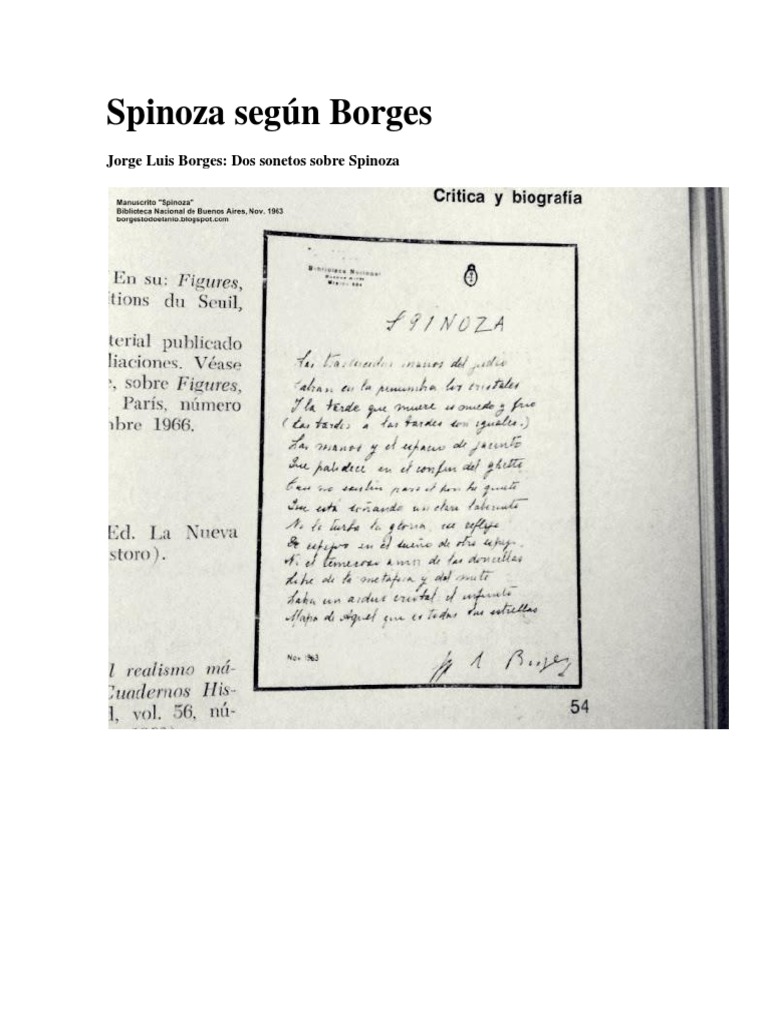 Spinoza según Borges
Jorge Luis Borges: Dos sonetos sobre Spinoza
Manuscrito "Spinoza"
Biblioteca Nacional de Buenos Aires, Nov. 1963
borgestodoelanio.blogspot.com
Critica y biografía
En su: Figures,
tions du Seuil,
terial publicado
liaciones. Véase
, sobre Figures,
París, número
bre 1966.
Ed. La Nueva
storo).
l realismo má-
Cuadernos His-
l, vol. 56, nú-
Biblioteca Nacional
Buenos Aires
México 564
SPINOZA
Las traslúcidas manos del judío
Labran en la penumbra los cristales
Y la tarde que muere es miedo y frío
(Las tardes a las tardes son iguales.)
Las manos y el espacio de jacinto
Que palidece en el confín del ghetto
Casi no existen para el hombre quieto
Que está soñando un claro laberinto
No lo turba la gloria, ese reflejo
De espejo en el sueño de otro espejo
Ni el temeroso amor de las doncellas
Libre de la metáfora y del mito
Labra un arduo cristal: el infinito
Mapa de Aquel que es todas sus estrellas
Nov 1963
J L Borges
54